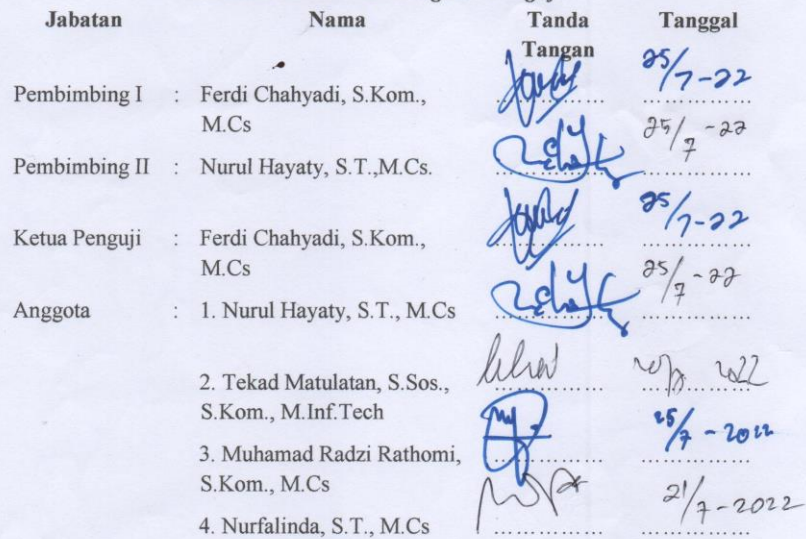 Jabatan Nama Tanda Tangan Tanggal
Pembimbing I : Ferdi Chahyadi, S.Kom., 25/7-22
M.Cs
Pembimbing II : Nurul Hayaty, S.T.,M.Cs. 25/7-22
Ketua Penguji : Ferdi Chahyadi, S.Kom., 25/7-22
M.Cs
Anggota : 1. Nurul Hayaty, S.T., M.Cs 25/7-22
2. Tekad Matulatan, S.Sos., 2022
S.Kom., M.Inf.Tech
3. Muhamad Radzi Rathomi, 25/7-2022
S.Kom., M.Cs
4. Nurfalinda, S.T., M.Cs 21/7-2022